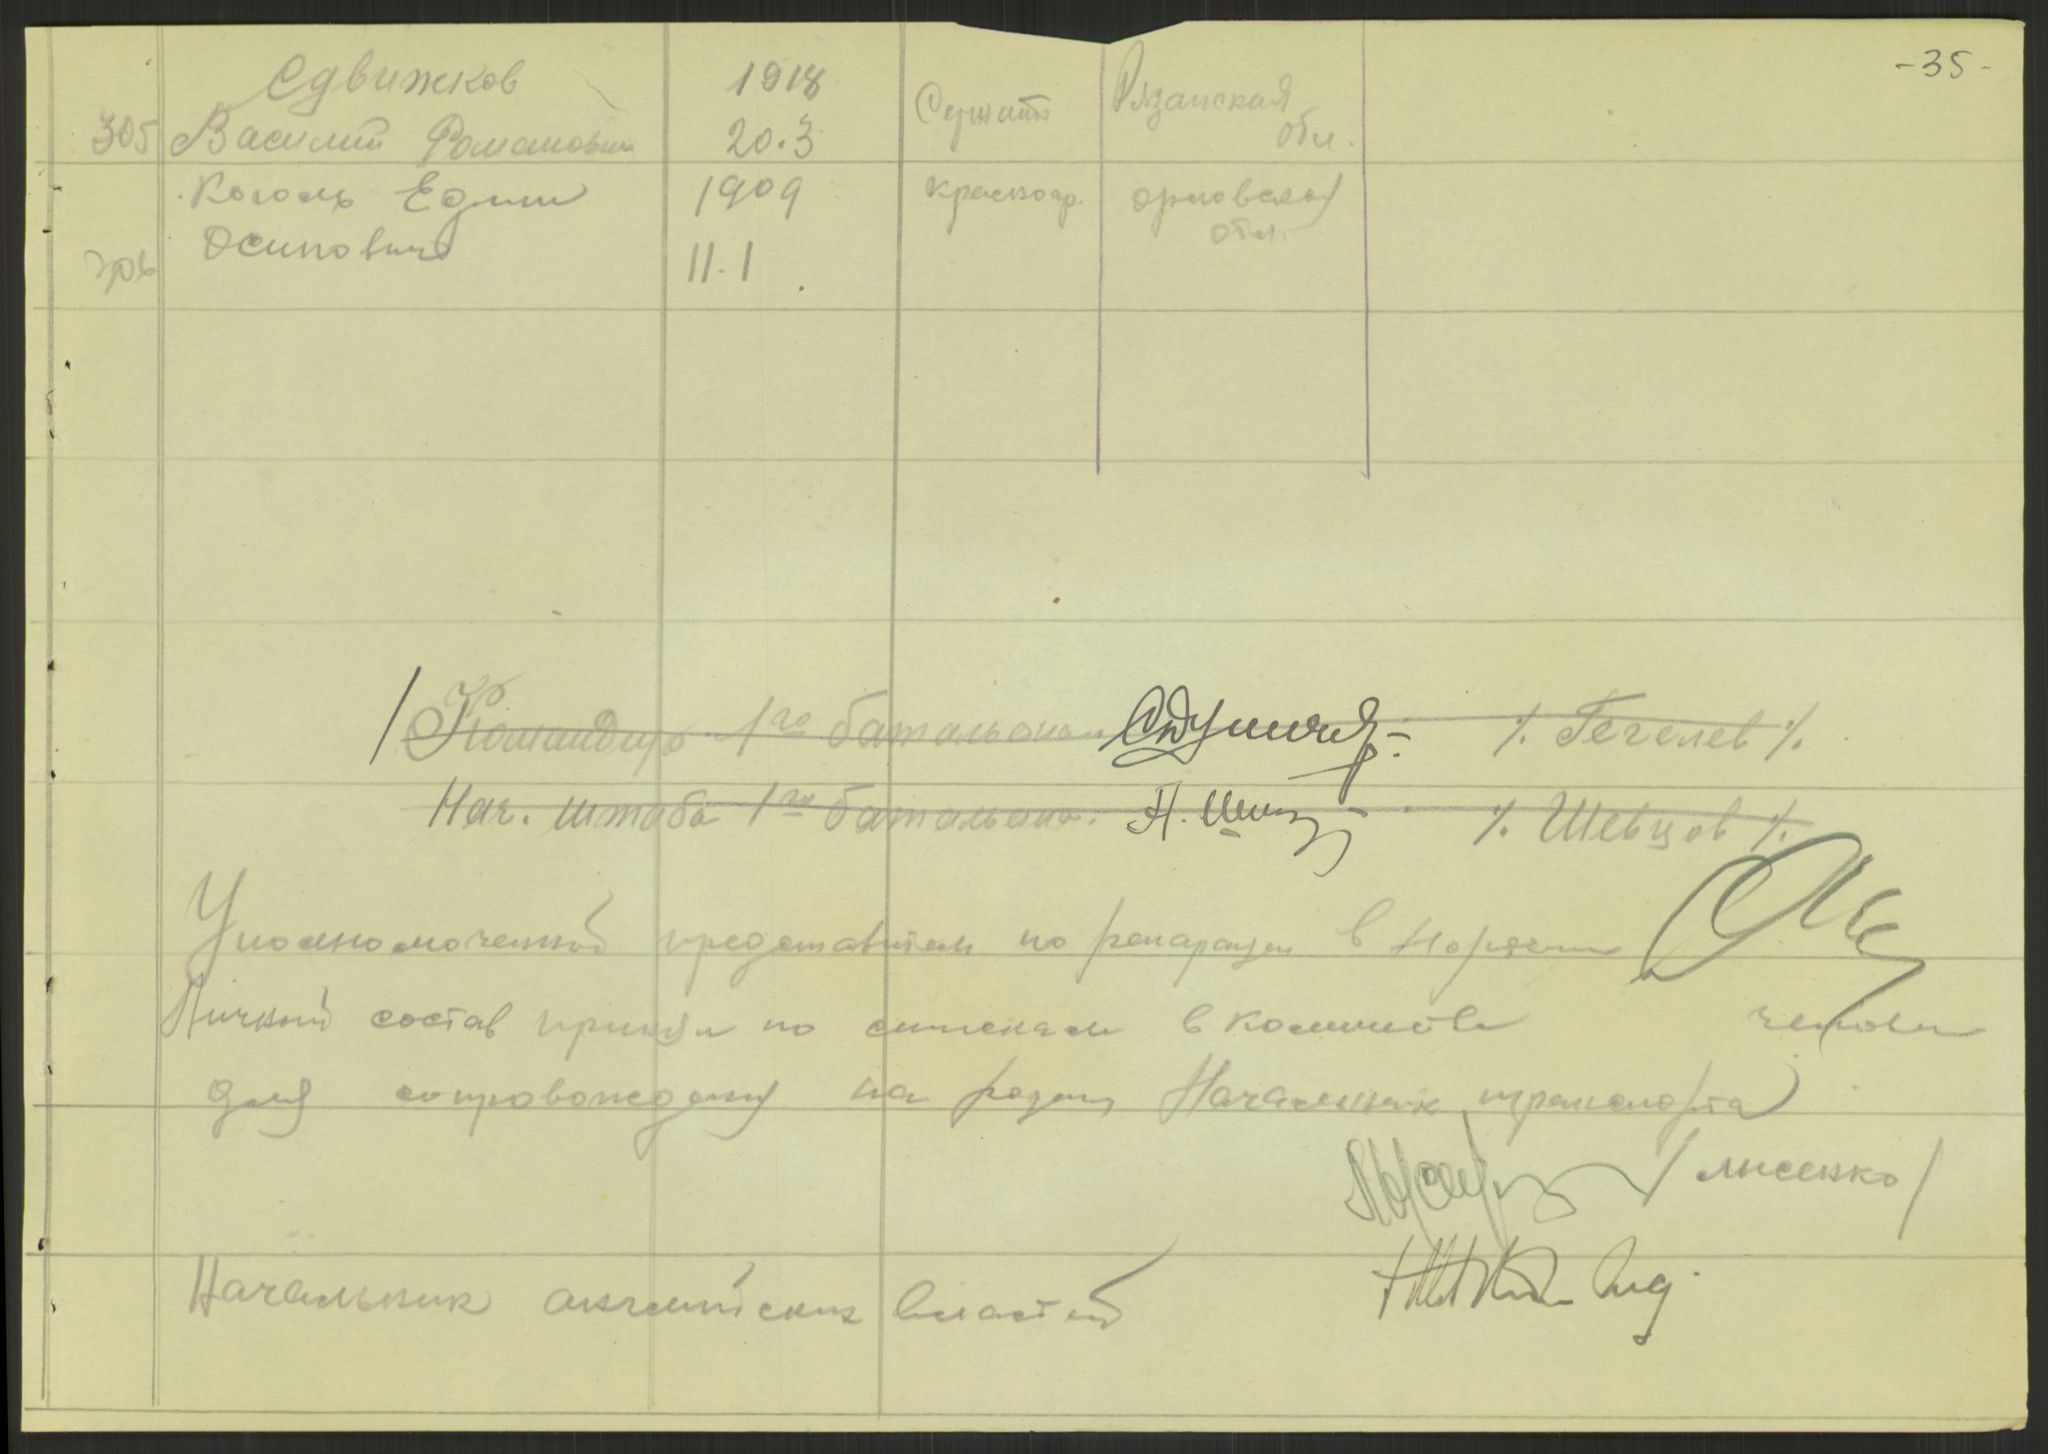 -35-
Сдвижков 1918 Сержант Рязанская
305 Василий Романович 20.3 обл.
Коголь Ефим 1909 красноар. орловская
306 Осипович 11.1 обл.
Командир 1го батальона % Гегелев %.
Нач. штаба 1го батальона. Н. % Шевцов %.
Уполномоченный представитель по репарации в Норвегии
Личный состав принял по спискам в количестве человек
для сопровождения на родину Начальник транспорта
/ лисенко /
Начальник английских властей